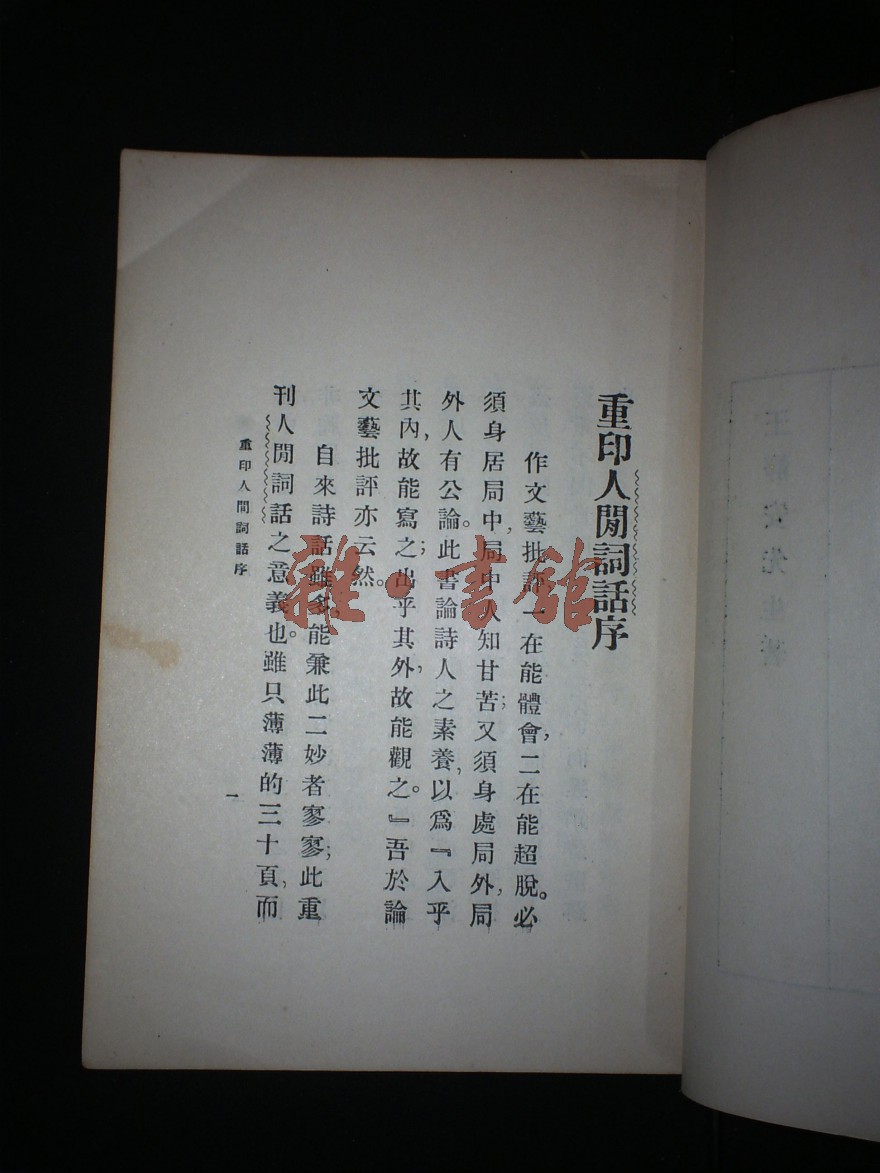 重印人閒詞話序
作文藝批評一在能體會，二在能超脫。必
須身居局中，局中人知甘苦；又須身處局外，局
外人有公論。此書論詩人之素養，以爲『入乎
其內，故能寫之；出乎其外，故能觀之。』吾於論
文藝批評亦云然。
自來詩話雖多，能兼此二妙者寥寥；此重
刊人閒詞話之意義也。雖只薄薄的三十頁，而
重印人閒詞話序
一
雜·書館
王靜安先生著